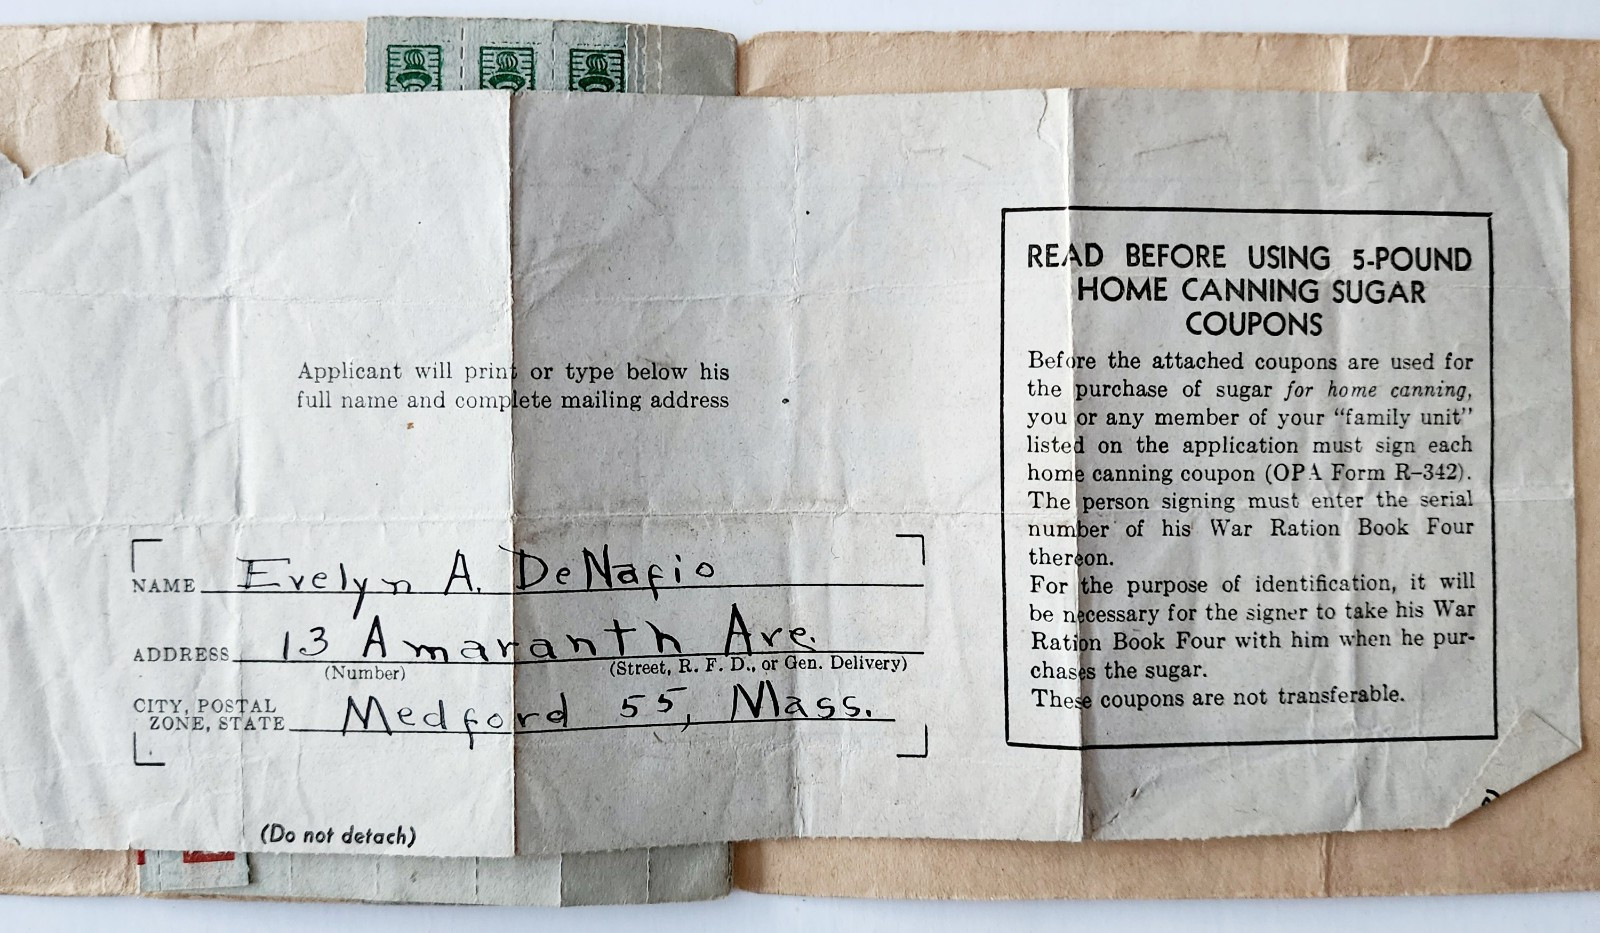 Applicant will print or type below his
full name and complete mailing address
NAME Evelyn A. DeNafio
ADDRESS 13 Amaranth Ave.
(Number) (Street, R. F. D., or Gen. Delivery)
CITY, POSTAL
ZONE, STATE Medford 55, Mass.
(Do not detach)
READ BEFORE USING 5-POUND
HOME CANNING SUGAR
COUPONS
Before the attached coupons are used for
the purchase of sugar for home canning,
you or any member of your “family unit”
listed on the application must sign each
home canning coupon (OPA Form R–342).
The person signing must enter the serial
number of his War Ration Book Four
thereon.
For the purpose of identification, it will
be necessary for the signer to take his War
Ration Book Four with him when he pur-
chases the sugar.
These coupons are not transferable.